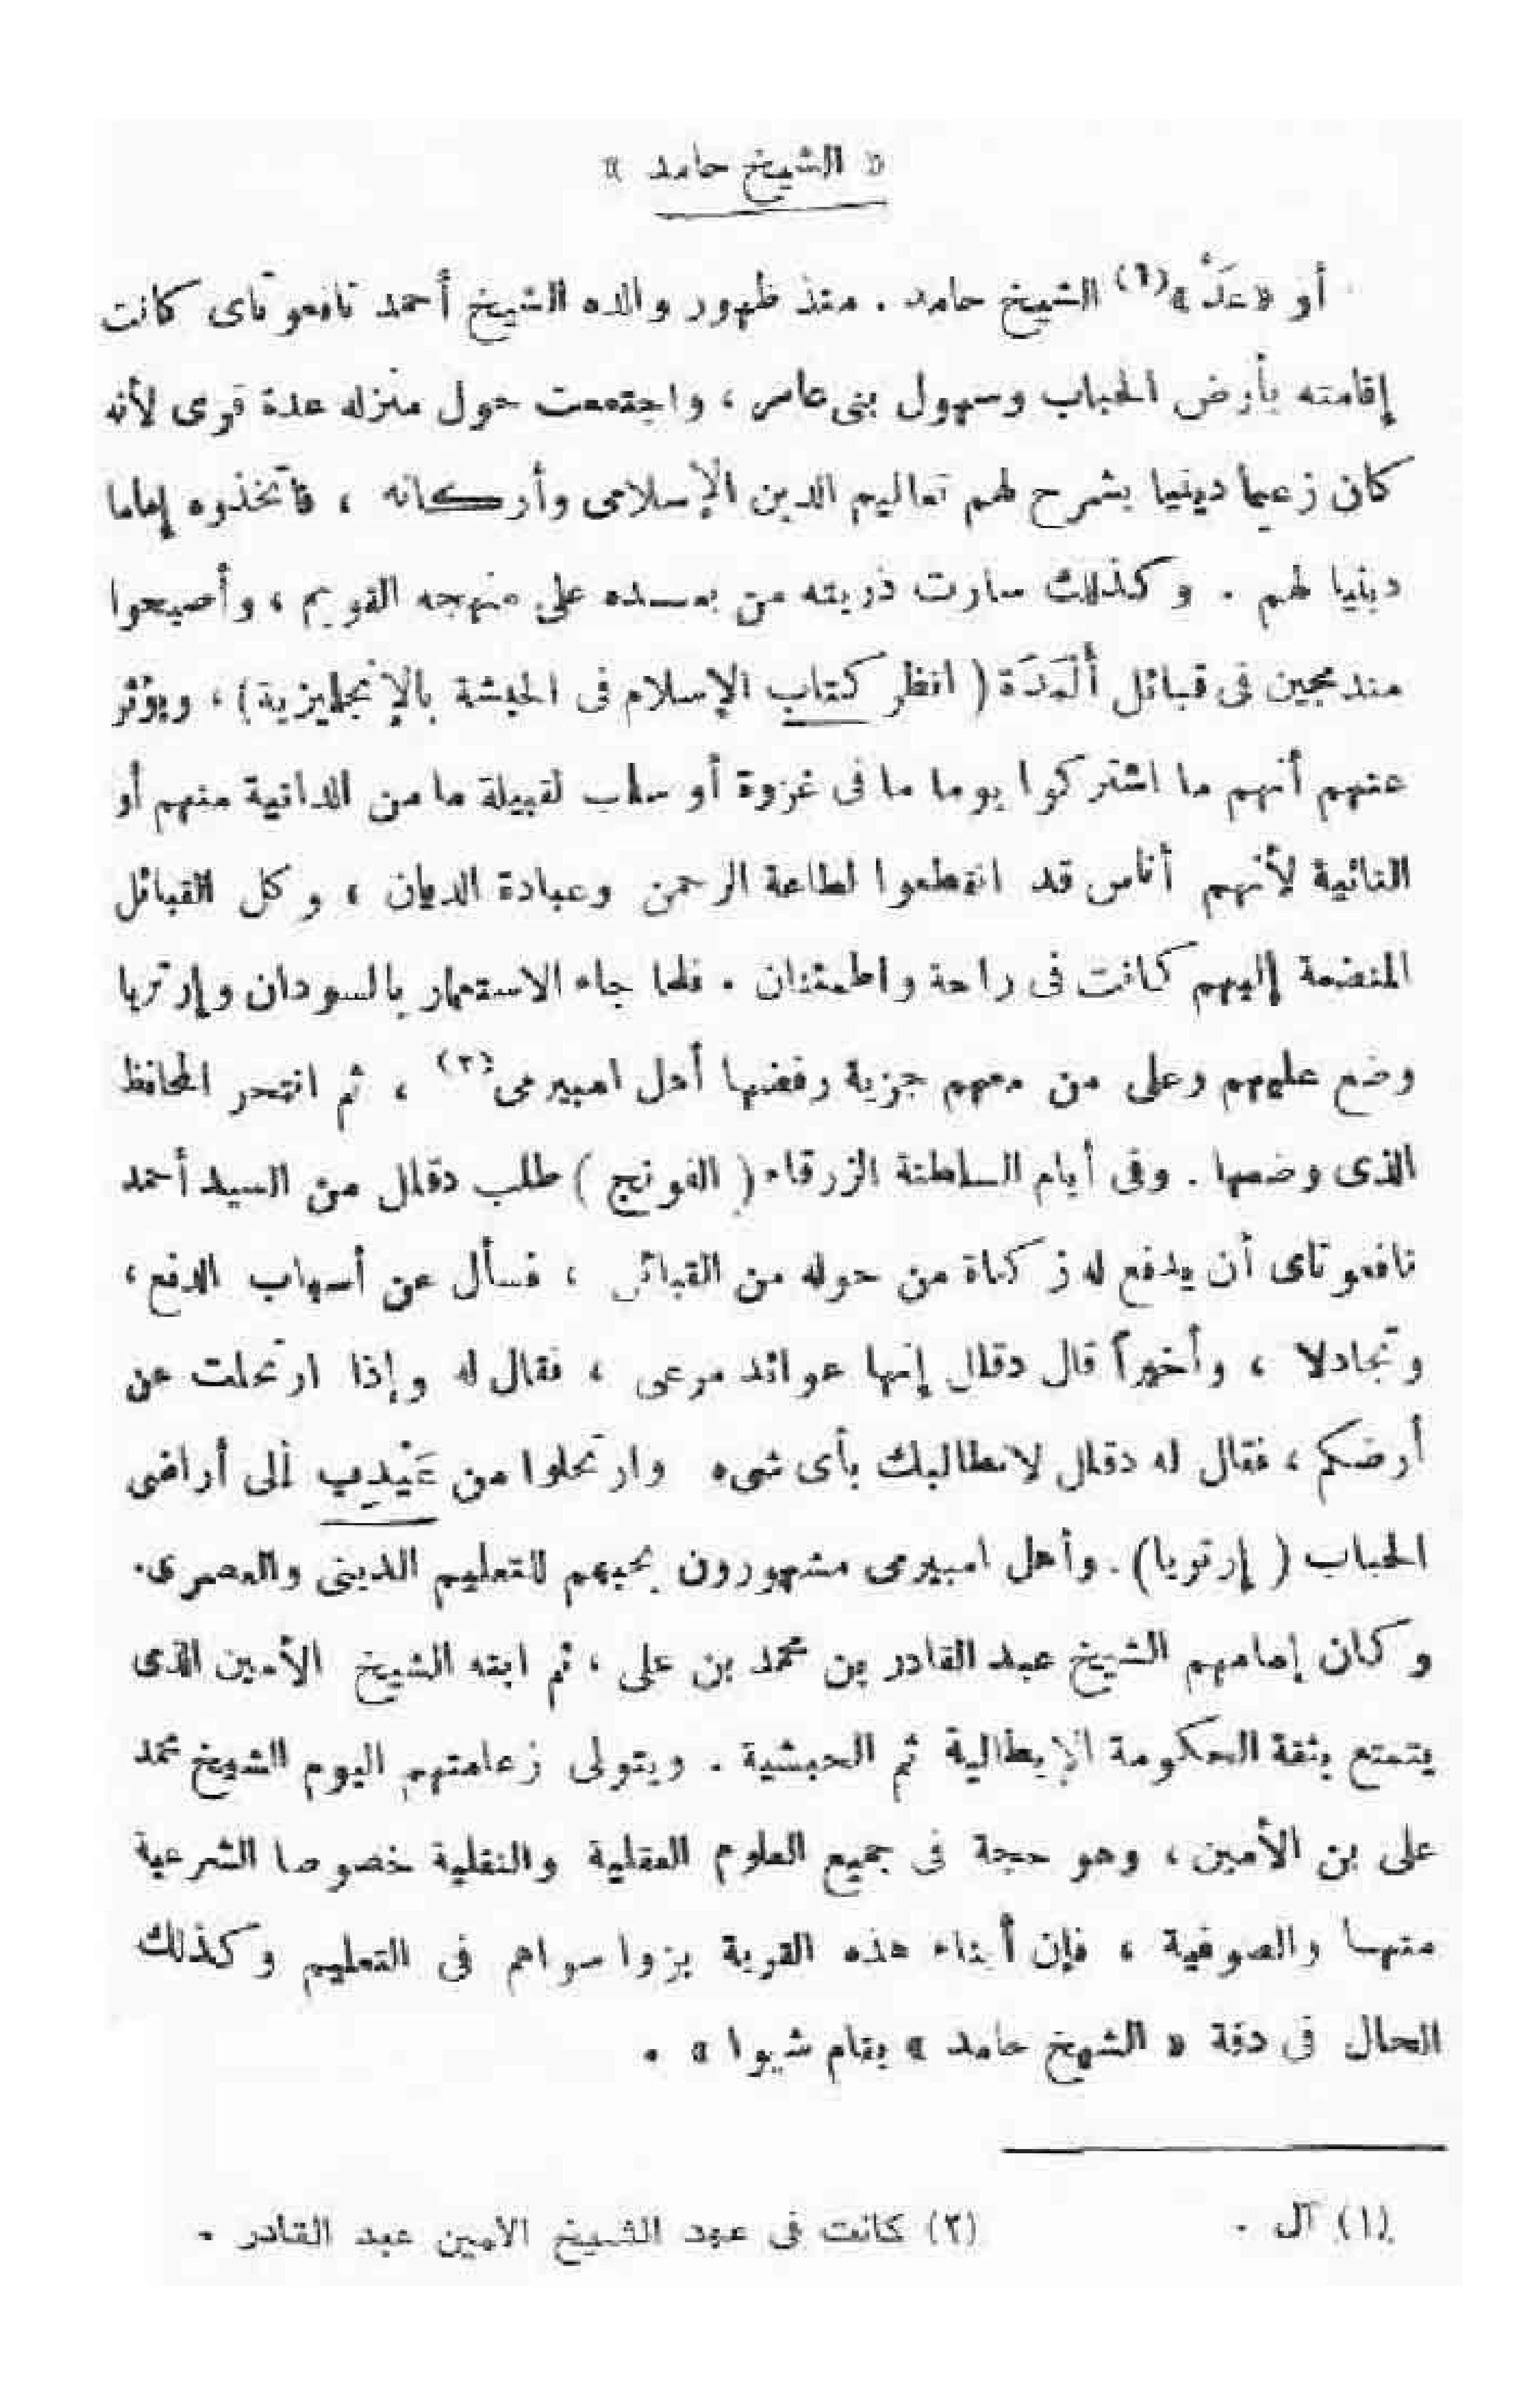 « الشيخ حامد »
أو «عَدْ»(١) الشيخ حامد . منذ ظهور والده الشيخ أحمد نافعوتاى كانت
إقامته بأرض الحباب وسهول بنى عامر ، واجتمعت حول منزله عدة قرى لأنه
كان زعيما دينيا يشرح لهم تعاليم الدين الإسلامى وأركانه ، فاتخذوه إماما
دينيا لهم . وكذلك سارت ذريته من بعده على منهجه القويم ، وأصبحوا
مندمجين فى قبائل أَلْمَدَة ( انظر كتاب الإسلام فى الحبشة بالإنجليزية) ، ويؤثر
عنهم أنهم ما اشتركوا يوما ما فى غزوة أو سلب لقبيلة ما من الدانية منهم أو
النائية لأنهم أناس قد انقطعوا لطاعة الرحمن وعبادة الديان ، وكل القبائل
المنضمة إليهم كانت فى راحة واطمئنان . فلما جاء الاستعمار بالسودان وإرتريا
وضع عليهم وعلى من معهم جزية رفضها أهل امبيرمى(٢) ، ثم انتحر المحافظ
الذى وضعها . وفى أيام السلطنة الزرقاء ( الفونج ) طلب دقلل من السيد أحمد
نافعوتاى أن يدفع له زكاة من حوله من القبائل ، فسأل عن أسباب الدفع ،
وتجادلا ، وأخيراً قال دقلل إنها عوائد مرعى ، فقال له وإذا ارتحلت عن
أرضكم ، فقال له دقلل لانطالبك بأى شىء وارتحلوا من عَيْدِب إلى أراضى
الحباب ( إرتريا) . وأهل امبيرمى مشهورون بحبهم للتعليم الدينى والعصرى .
وكان إمامهم الشيخ عبد القادر بن محمد بن على ، ثم ابنه الشيخ الأمين الذى
يتمتع بثقة الحكومة الإيطالية ثم الحبشية . ويتولى زعامتهم اليوم الشيخ محمد
على بن الأمين ، وهو حجة فى جميع العلوم العقلية والنقلية خصوصا الشرعية
منها والصوفية ، فإن أبناء هذه القرية بزوا سواهم فى التعليم وكذلك
الحال فى دقة « الشيخ حامد » بقام شيوا » .
(١) آل .
(٢) كانت فى عهد الشيخ الأمين عبد القادر .